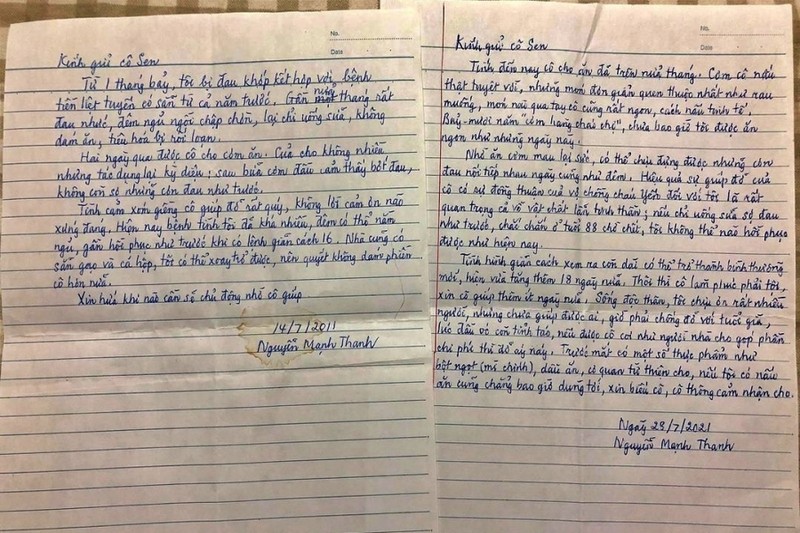 No.
Date
Kính gửi cô Sen
Từ 1 tháng bảy, tôi bị đau khớp kết hợp với bệnh
tiền liệt tuyến có sẵn từ cả năm trước. Gần nửa tháng rất
đau nhức, đêm ngủ ngồi chập chờn, lại chỉ uống sữa, không
dám ăn, tiêu hóa bị rối loạn.
Hai ngày qua được cô cho cơm ăn. Của cho không nhiều
nhưng tác dụng lại kỳ diệu; sau bữa cơm đầu cảm thấy bớt đau,
không còn sợ những cơn đau như trước.
Tình cảm xóm giềng cô giúp đỡ rất quý, không lời cảm ơn nào
xứng đáng. Hiện nay bệnh tình tôi đã khá nhiều, đêm có thể nằm
ngủ, gần hồi phục như trước khi có lệnh giãn cách 16. Nhà cũng có
sẵn gạo và cá hộp, tôi có thể xoay trở được, nên quyết không dám phiền
cô hơn nữa.
Xin hứa khi nào cần sẽ chủ động nhờ cô giúp
14/7/2011
Nguyễn Mạnh Thanh
No.
Date
Kính gửi cô Sen
Tính đến nay cô cho ăn đã trên nửa tháng. Cơm cô nấu
thật tuyệt vời, những món đơn giản quen thuộc nhất như rau
muống, món nào qua tay cô cũng rất ngon, cách nấu tinh tế.
Bảy-mươi năm "cơm hàng cháo chợ", chưa bao giờ tôi được ăn
ngon như những ngày này.
Nhờ ăn cơm mau lại sức, có thể chịu đựng được những cơn
đau nối tiếp nhau ngày cũng như đêm. Hiệu quả sự giúp đỡ của
cô có sự đồng thuận của vợ chồng cháu Yến đối với tôi là rất
quan trọng cả về vật chất lẫn tinh thần; nếu chỉ uống sữa sợ đau
như trước, chắc chắn ở tuổi 88 chỉ chết, tôi không thể nào hồi phục
được như hiện nay.
Tình hình giãn cách xem ra còn dài có thể trở thành bình thường
mới, hiện vừa tăng thêm 18 ngày nữa. Thôi thì cô làm phúc phải tội,
xin cô giúp thêm ít ngày nữa. Sống độc thân, tôi chịu ơn rất nhiều
người, nhưng chưa giúp được ai, giờ phải chống đỡ với tuổi già,
lúc đầu vó còn tỉnh táo, nếu được cô coi như người nhà cho góp phần
chi phí thì đỡ áy náy. Trước mắt có một số thực phẩm như
bột ngọt (mì chính), dầu ăn, cơ quan từ thiện cho, nếu tôi có nấu
ăn cũng chẳng bao giờ dùng tới, xin biếu cô, cô thông cảm nhận cho.
Ngày 28/7/2021
Nguyễn Mạnh Thanh